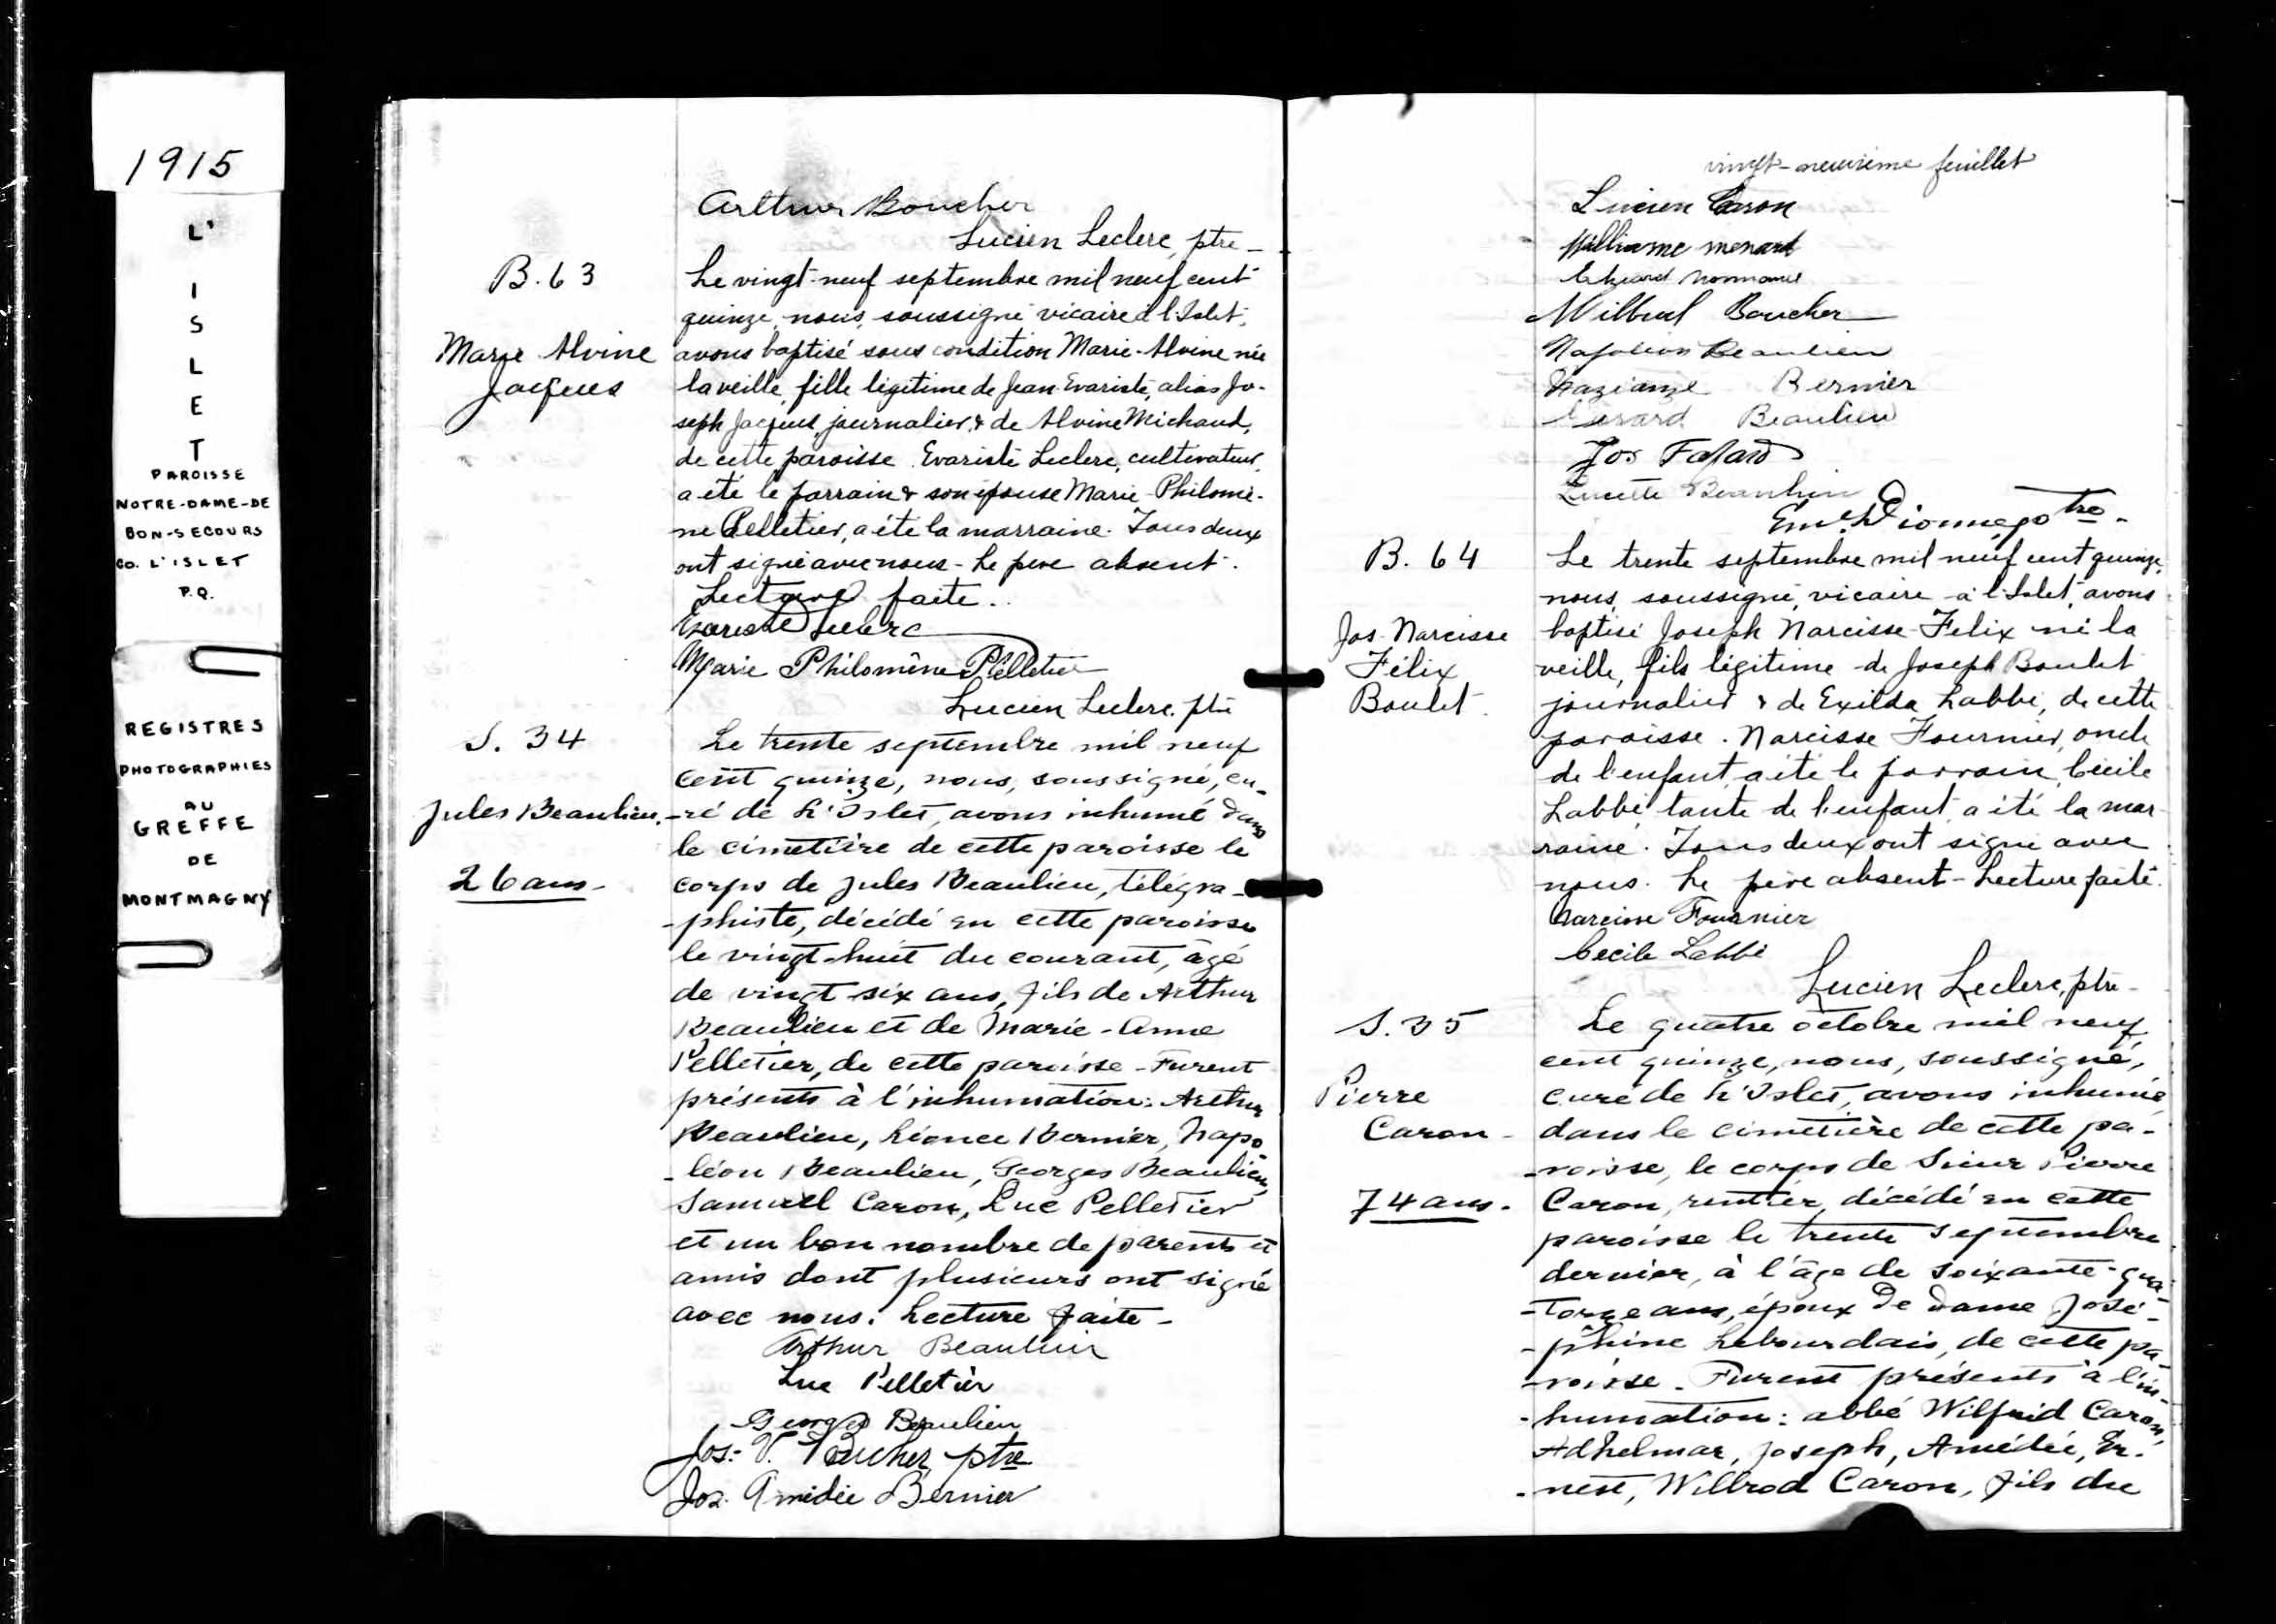 1915
L'
I
S
L
E
T
PAROISSE
NOTRE-DAME-DE
BON-SECOURS
CO. L'ISLET
P.Q.
REGISTRES
PHOTOGRAPHIES
AU
GREFFE
DE
MONTMAGNY
Arthur Boucher
Lucien Leclerc, ptre -
B. 63
Marie Alvine
Jacques
Le vingt-neuf septembre mil neuf cent
quinze, nous, soussigné vicaire à l'Islet,
avons baptisé sous condition Marie-Alvine née
la veille, fille légitime de Jean Evariste, alias Jo-
seph Jacques, journalier, & de Alvine Michaud,
de cette paroisse. Evariste Leclerc, cultivateur,
a été le parrain & son épouse Marie-Philomè-
ne Pelletier, a été la marraine. Tous deux
ont signé avec nous - Le père absent.
Lecture faite.
Evariste Leclerc
Marie Philomène Pelletier
Lucien Leclerc, ptre
S. 34
Jules Beaulieu.
26 ans -
Le trente septembre mil neuf
cent quinze, nous, soussigné, cu-
-ré de L'Islet, avons inhumé dans
le cimetière de cette paroisse le
corps de Jules Beaulieu, télégra-
-phiste, décédé en cette paroisse
le vingt-huit du courant, âgé
de vingt-six ans, fils de Arthur
Beaulieu et de Marie-Anne
Pelletier, de cette paroisse - Furent
présents à l'inhumation: Arthur
Beaulieu, Léonce Bernier, Napo
-léon Beaulieu, Georges Beaulieu,
Samuel Caron, Luc Pelletier
et un bon nombre de parents et
amis dont plusieurs ont signé
avec nous. Lecture faite -
Arthur Beaulieu
Luc Pelletier
Georges Beaulieu
Jos. V. Boucher ptre
Jos. Amédée Bernier
vingt-neuvième feuillet
Lucien Caron
Williame menard
Normand
Wilbrod Boucher
Napoléon Beaulieu
Nazianze Bernier
Beaulieu
Jos Fafard
Lucette Beaulieu
Em. Dionne, ptre -
B. 64
Jos. Narcisse
Félix
Boulet
Le trente septembre mil neuf cent quinze,
nous, soussigné, vicaire à l'Islet, avons
baptisé Joseph Narcisse-Felix né la
veille, fils légitime de Joseph Boulet
journalier & de Exilda Labbé, de cette
paroisse. Narcisse Fournier, oncle
de l'enfant, a été le parrain, Cécile
Labbé tante de l'enfant a été la mar
raine. Tous deux ont signé avec
nous. Le père absent - Lecture faite.
Narcisse Fournier
Cecile Labbé
Lucien Leclerc, ptre -
S. 35
Pierre
Caron -
74 ans.
Le quatre octobre mil neuf
cent quinze, nous, soussigné,
curé de L'Islet, avons inhumé
dans le cimetière de cette pa-
-roisse, le corps de Sieur Pierre
Caron, rentier, décédé en cette
paroisse le trente septembre
dernier, à l'âge de soixante-qua-
-torze ans, époux de dame José-
-phine Lebourdais, de cette pa-
-roisse. Furent présents à l'in-
-humation: abbé Wilfrid Caron,
Adhelmar, Joseph, Amédée, Er-
-nest, Wilbrod Caron, fils du